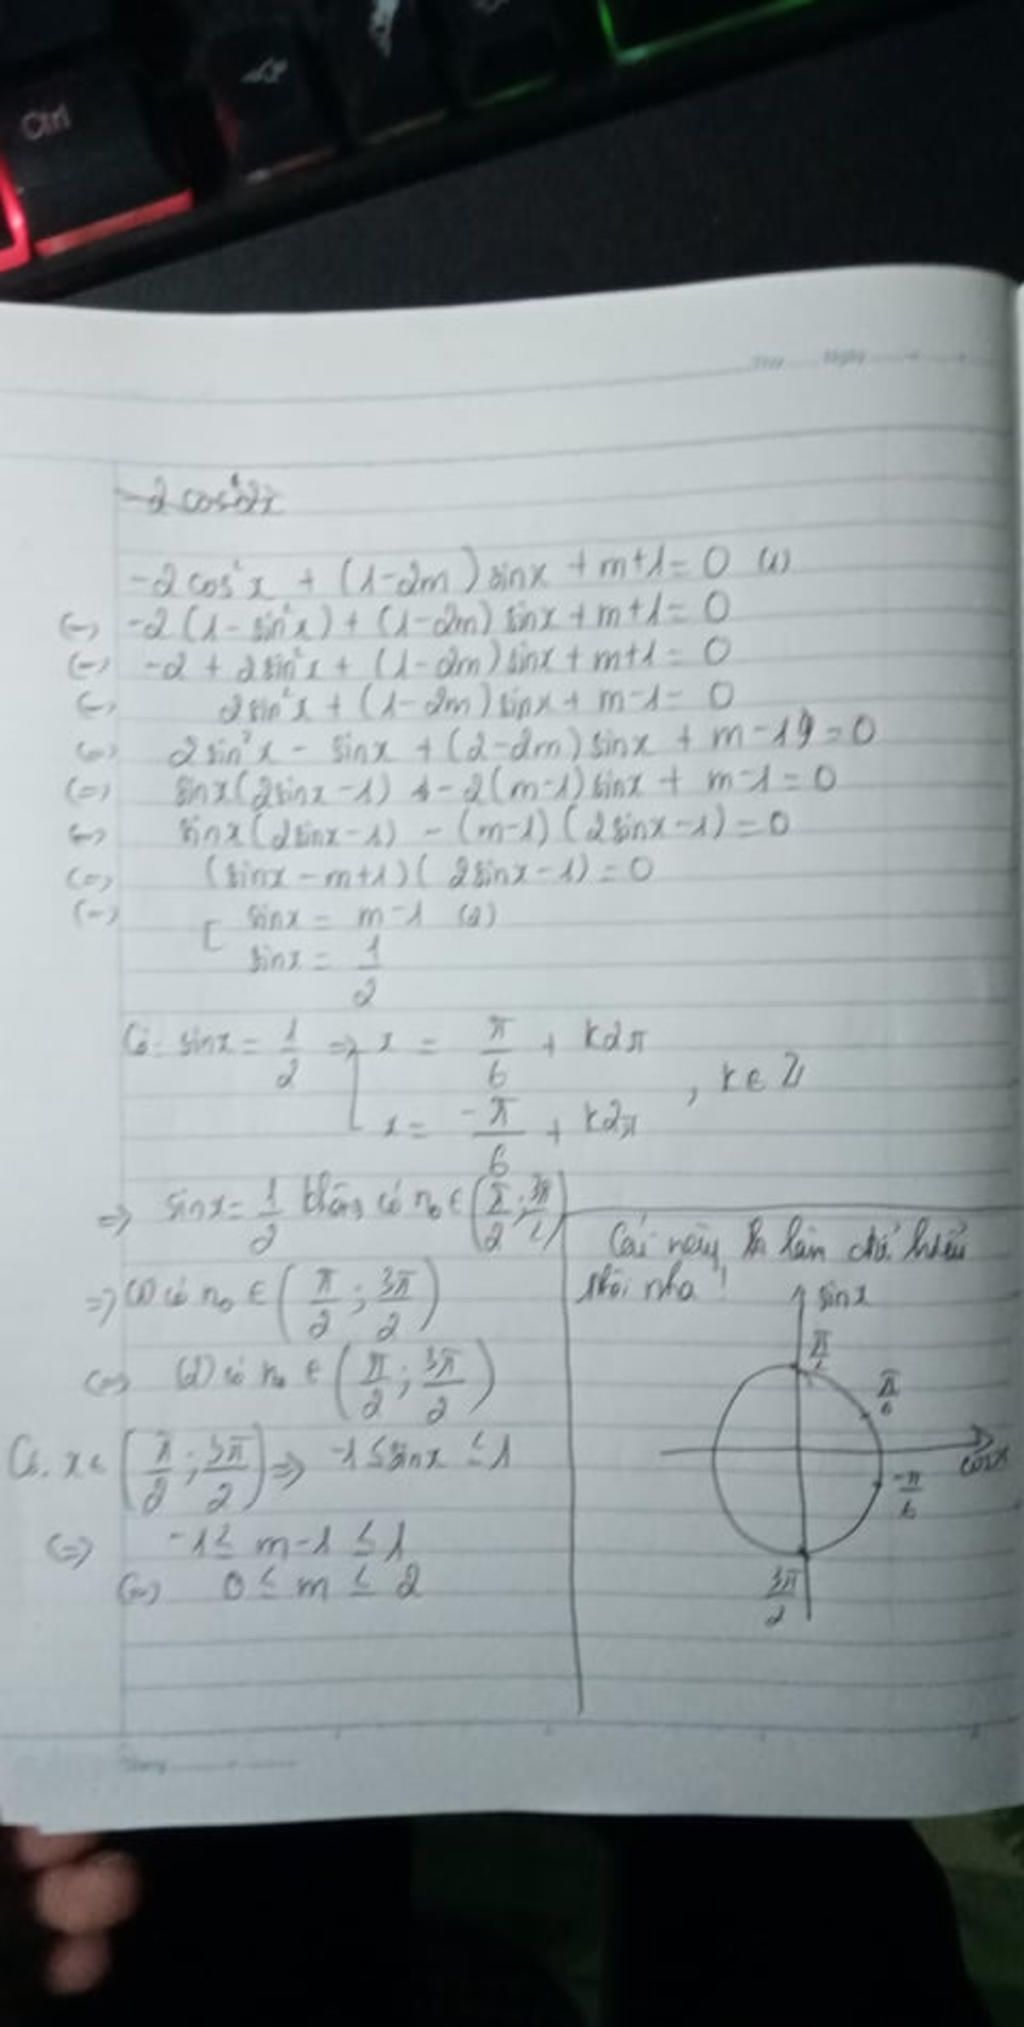 Ctrl
Thứ Ngày
-2cos²2x
-2cos²x + (1-2m)sinx + m+1 = 0 (1)
(=) -2(1-sin²x) + (1-2m)sinx + m+1 = 0
(=) -2 + 2sin²x + (1-2m)sinx + m+1 = 0
(=) 2sin²x + (1-2m)sinx + m-1 = 0
(=) 2sin²x - sinx + (2-2m)sinx + m-1 = 0
(=) sinx(2sinx-1) - 2(m-1)sinx + m-1 = 0
(=) sinx(2sinx-1) - (m-1)(2sinx-1) = 0
(=) (sinx-m+1)(2sinx-1) = 0
(=) [ sinx = m-1 (2)
sinx = 1/2
Có: sinx = 1/2 => [ x = π/6 + k2π
x = -π/6 + k2π , k ∈ Z
=> sinx = 1/2 không có no ∈ (π/2; 3π/2)
=> (1) có no ∈ (π/2; 3π/2)
(=) (2) có no ∈ (π/2; 3π/2)
Có: x ∈ (π/2; 3π/2) => -1 ≤ sinx ≤ 1
(=) -1 ≤ m-1 ≤ 1
(=) 0 ≤ m ≤ 2
Cái này làm để hiểu
thôi nha!
sinx
π/2
π/6
cosx
-π/6
3π/2